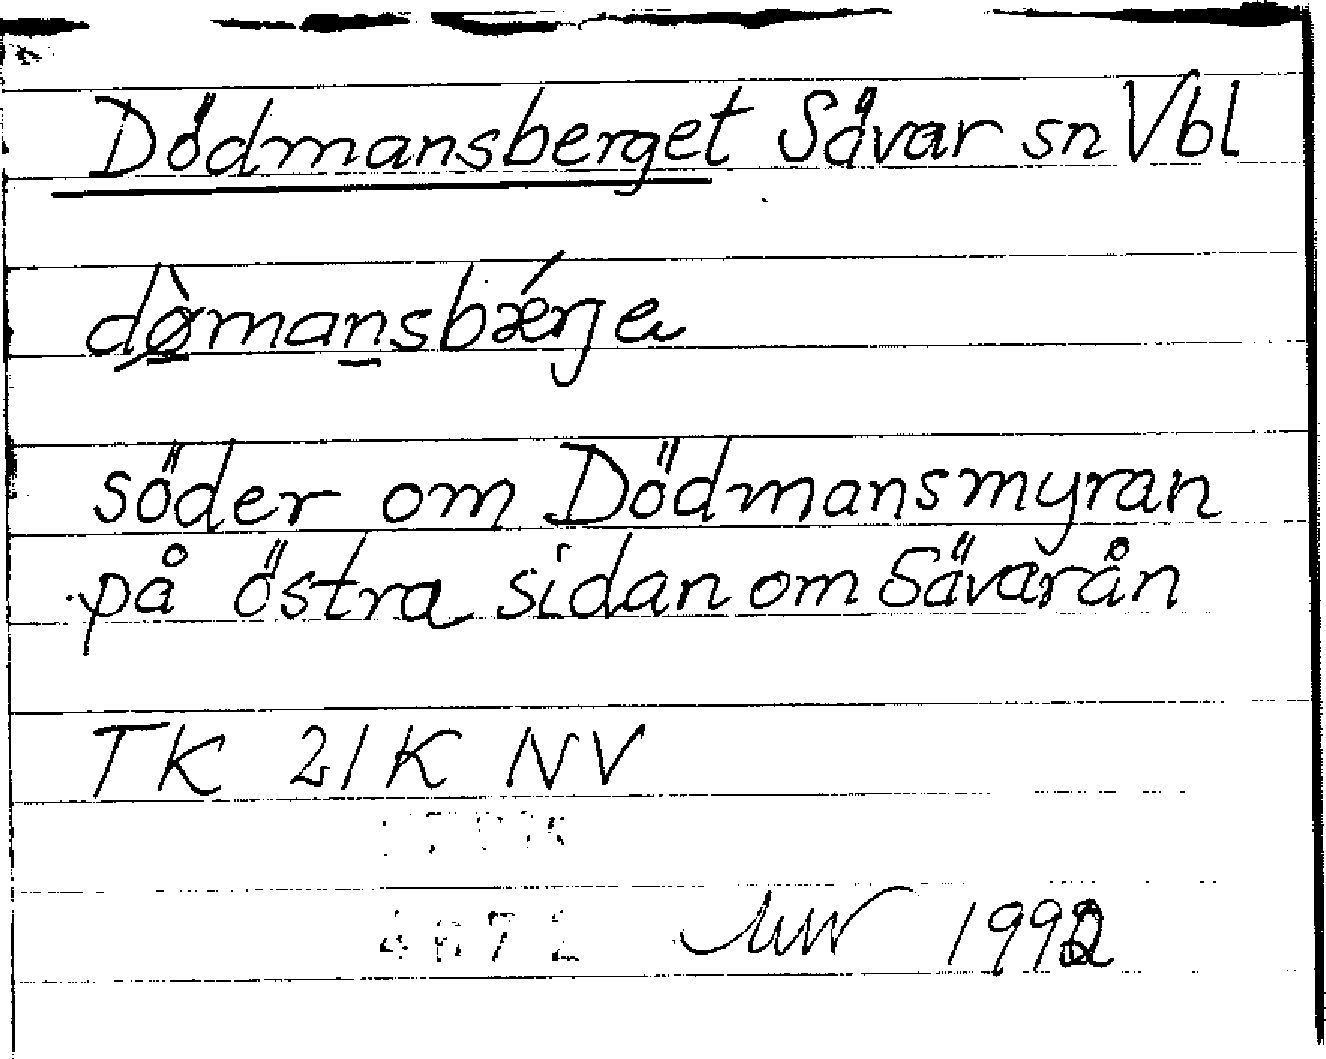 Dödmansberget Sävar sn Vbl
dø̀mansbǽrje
söder om Dödmansmyran
på östra sidan om Sävarån
TK 21K NV
1992